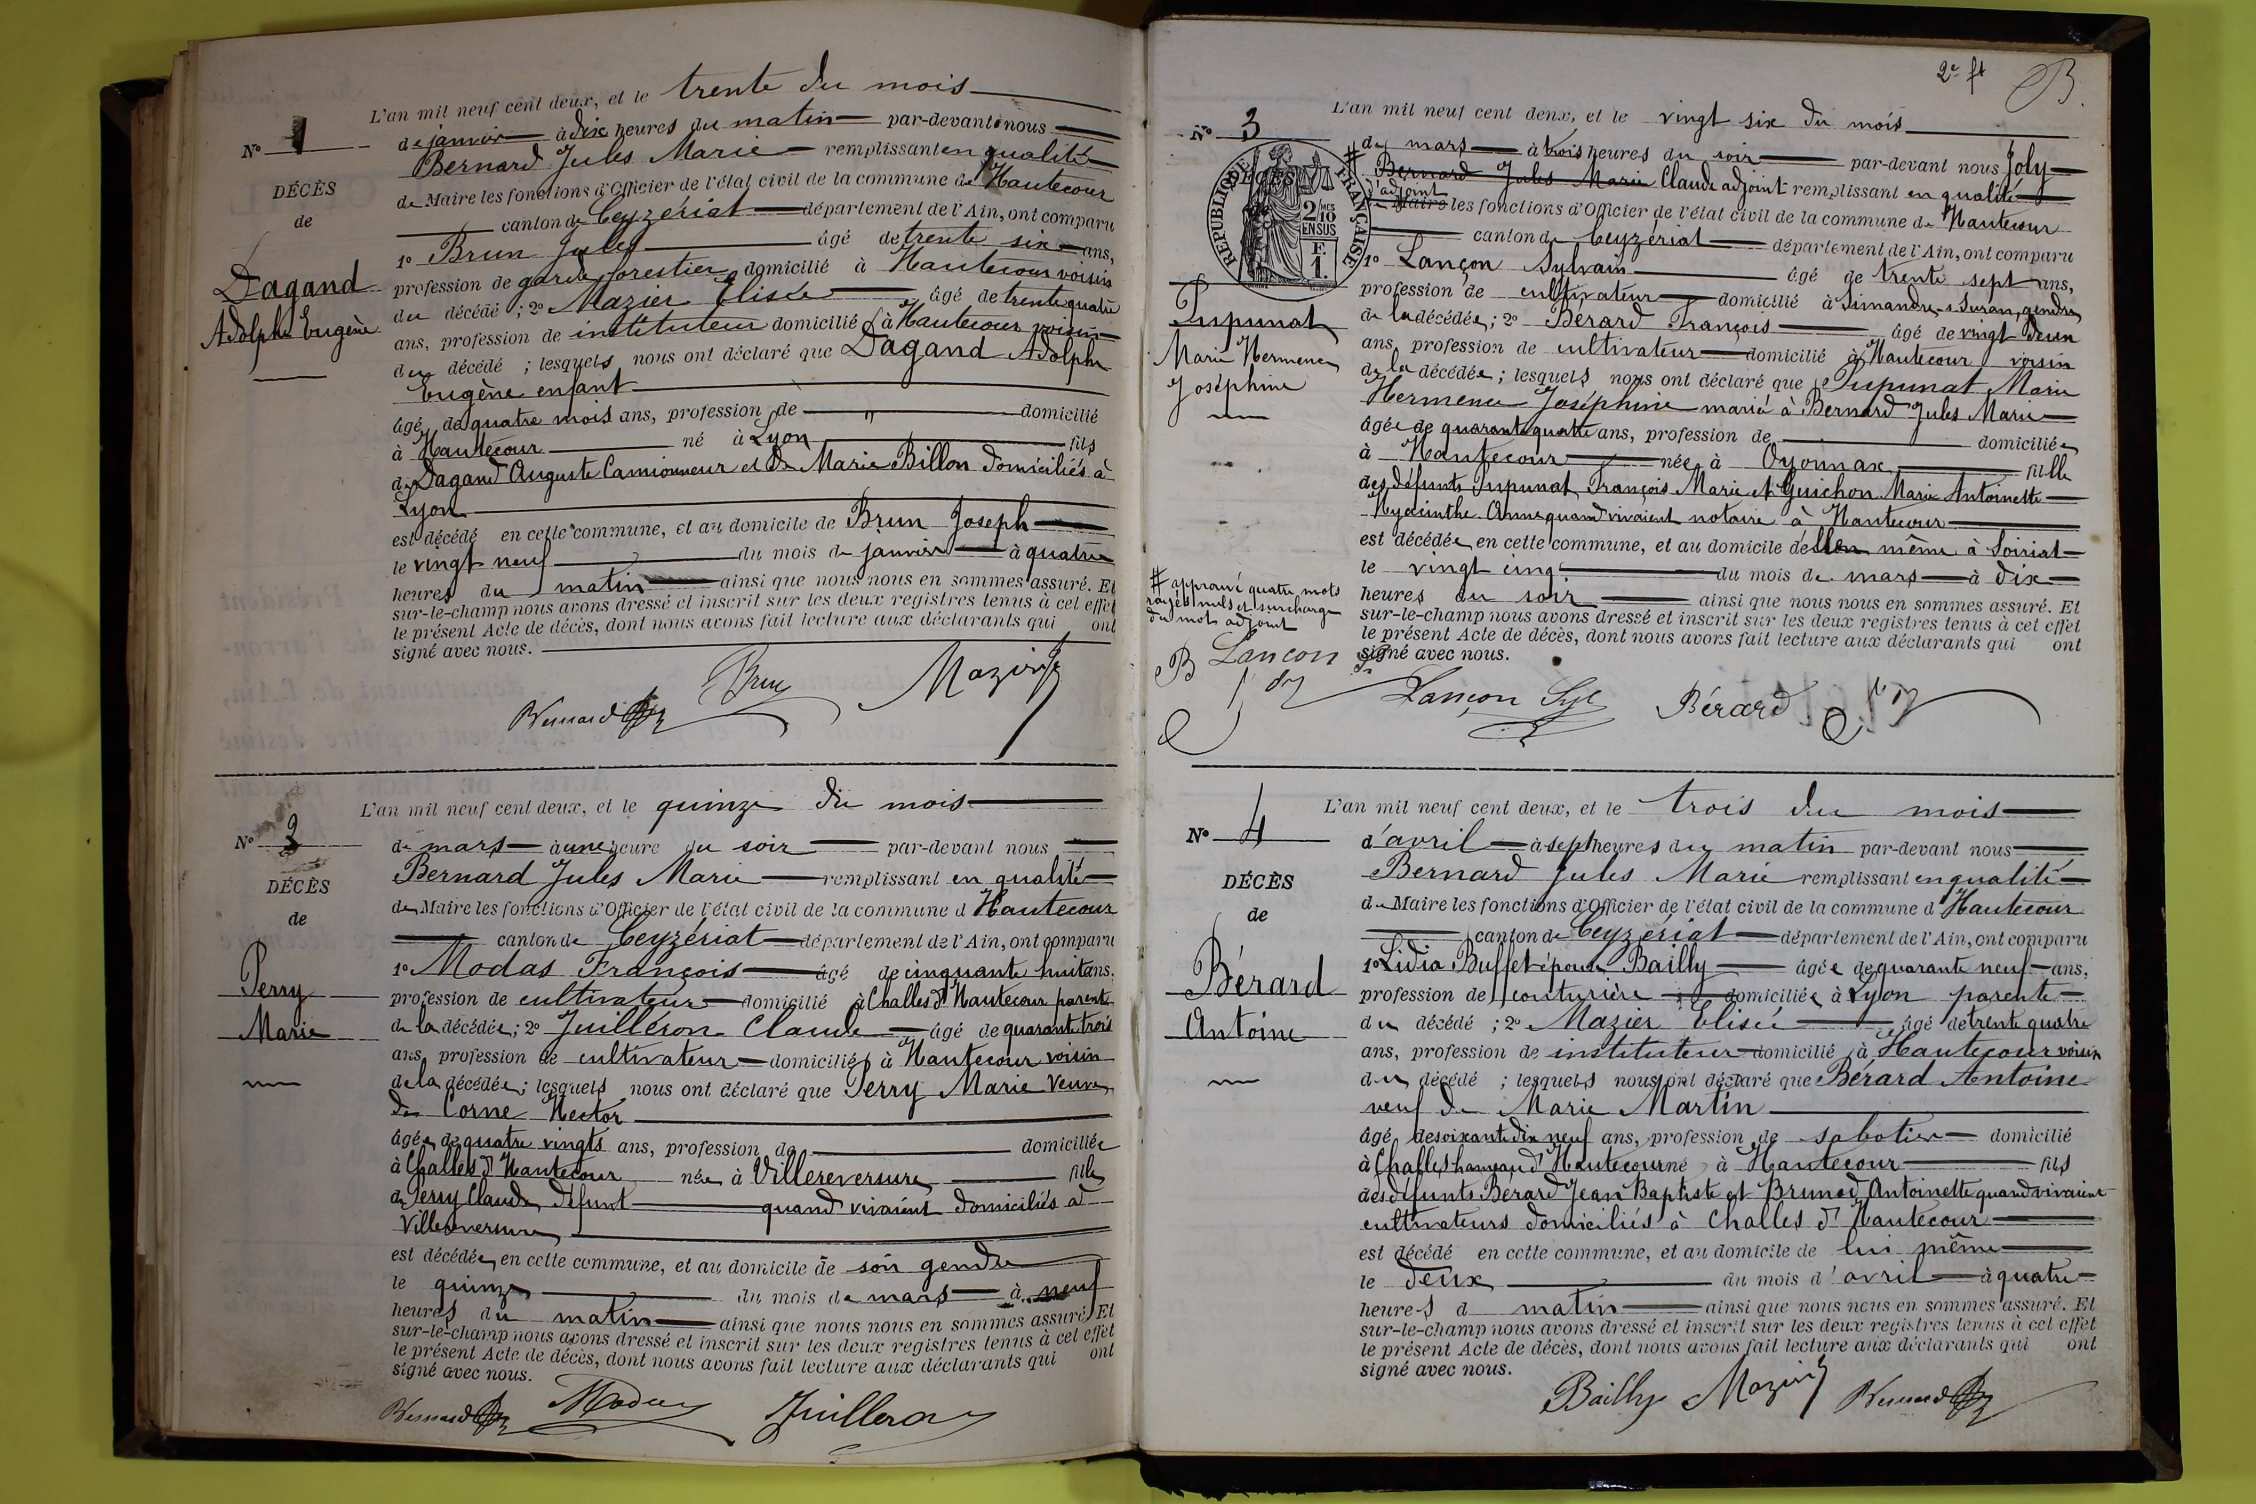 L'an mil neuf cent deux, et le trente du mois
N° 1
de janvier à dix heures du matin par-devant nous
Bernard Jules Marie remplissant en qualité
DÉCÈS
de Maire les fonctions d'Officier de l'état civil de la commune de Hautecour
de
canton de Ceyzériat département de l'Ain, ont comparu
1° Brun Jules âgé de trente six ans,
Dagand
profession de garde forestier domicilié à Hautecour voisin
Adolphe Eugène
du décédé ; 2° Mazier Elisée âgé de trente quatre
ans, profession de instituteur domicilié à Hautecour voisin
du décédé ; lesquels nous ont déclaré que Dagand Adolphe
Eugène enfant
âgé de quatre mois ans, profession de " domicilié
à Hautecour né à Lyon fils
de Dagand Auguste Camionneur et de Marie Billon domiciliés à
Lyon
est décédé en cette commune, et au domicile de Brun Joseph
le vingt neuf du mois de janvier à quatre
heures du matin ainsi que nous nous en sommes assuré. Et
sur-le-champ nous avons dressé et inscrit sur les deux registres tenus à cet effet
le présent Acte de décès, dont nous avons fait lecture aux déclarants qui ont
signé avec nous.
Brun Mazier
Bernard
L'an mil neuf cent deux, et le quinze du mois
N° 2
de mars à une heure du soir par-devant nous
Bernard Jules Marie remplissant en qualité
DÉCÈS
de Maire les fonctions d'Officier de l'état civil de la commune d Hautecour
de
canton de Ceyzériat département de l'Ain, ont comparu
1° Modas François âgé de cinquante huit ans,
Perry
profession de cultivateur domicilié à Challes d'Hautecour parent
Marie
de la décédée ; 2° Juilléron Claude âgé de quarante trois
ans, profession de cultivateur domicilié à Hautecour voisin
de la décédée ; lesquels nous ont déclaré que Perry Marie veuve
de Corne Hector
âgée de quatre vingts ans, profession de domiciliée
à Challes d'Hautecour née à Villereversure fille
de Perry Claude défunt quand vivaient domiciliés à
Villereversure
est décédée en cette commune, et au domicile de son gendre
le quinze du mois de mars à neuf
heures du matin ainsi que nous nous en sommes assuré. Et
sur-le-champ nous avons dressé et inscrit sur les deux registres tenus à cet effet
le présent Acte de décès, dont nous avons fait lecture aux déclarants qui ont
signé avec nous.
Bernard Modas Juilleron
2e ft B.
L'an mil neuf cent deux, et le vingt six du mois
N° 3
de mars à trois heures du soir par-devant nous Joly
# Bernard Jules Marie Claude adjoint remplissant en qualité
d'adjoint
de Maire les fonctions d'Officier de l'état civil de la commune de Hautecour
RÉPUBLIQUE FRANÇAISE
2/10 MES
EN SUS
F.
1.
canton de Ceyzériat département de l'Ain, ont comparu
1° Lançon Sylvain âgé de trente sept ans,
profession de cultivateur domicilié à Simandre-s-Suran, gendre
Pupunat
Marie Hermence
Joséphine
de la décédée ; 2° Bérard François âgé de vingt deux
ans, profession de cultivateur domicilié à Hautecour voisin
de la décédée ; lesquels nous ont déclaré que Pupunat Marie
Hermence Joséphine marié à Bernard Jules Marie
âgée de quarante quatre ans, profession de domiciliée
à Hautecour née à Oyonnax fille
des défunts Pupunat François Marie et Guichon Marie Antoinette
Hyacinthe Anne quand vivaient notaire à Hautecour
est décédée en cette commune, et au domicile d'elle même à Soiriat
le vingt cinq du mois de mars à dix
heures du soir ainsi que nous nous en sommes assuré. Et
sur-le-champ nous avons dressé et inscrit sur les deux registres tenus à cet effet
le présent Acte de décès, dont nous avons fait lecture aux déclarants qui ont
signé avec nous.
# approuvé quatre mots
rayés nuls et surcharge
du mot adjoint
B Lançon
Lançon Syl Bérard
L'an mil neuf cent deux, et le trois du mois
N° 4
d'avril à sept heures du matin par-devant nous
Bernard Jules Marie remplissant en qualité
DÉCÈS
de Maire les fonctions d'Officier de l'état civil de la commune d'Hautecour
de
canton de Ceyzériat département de l'Ain, ont comparu
1° Lidia Buffet épouse Bailly âgée de quarante neuf ans,
Bérard
profession de couturière domiciliée à Lyon parente
Antoine
du décédé ; 2° Mazier Elisée âgé de trente quatre
ans, profession de instituteur domicilié à Hautecour voisin
du décédé ; lesquels nous ont déclaré que Bérard Antoine
veuf de Marie Martin
âgé de soixante dix neuf ans, profession de sabotier domicilié
à Challes hameau d'Hautecour né à Hautecour fils
des défunts Bérard Jean Baptiste et Brunod Antoinette quand vivaient
cultivateurs domiciliés à Challes d'Hautecour
est décédé en cette commune, et au domicile de lui même
le deux du mois d'avril à quatre
heures d matin ainsi que nous nous en sommes assuré. Et
sur-le-champ nous avons dressé et inscrit sur les deux registres tenus à cet effet
le présent Acte de décès, dont nous avons fait lecture aux déclarants qui ont
signé avec nous.
Bailly Mazier Bernard